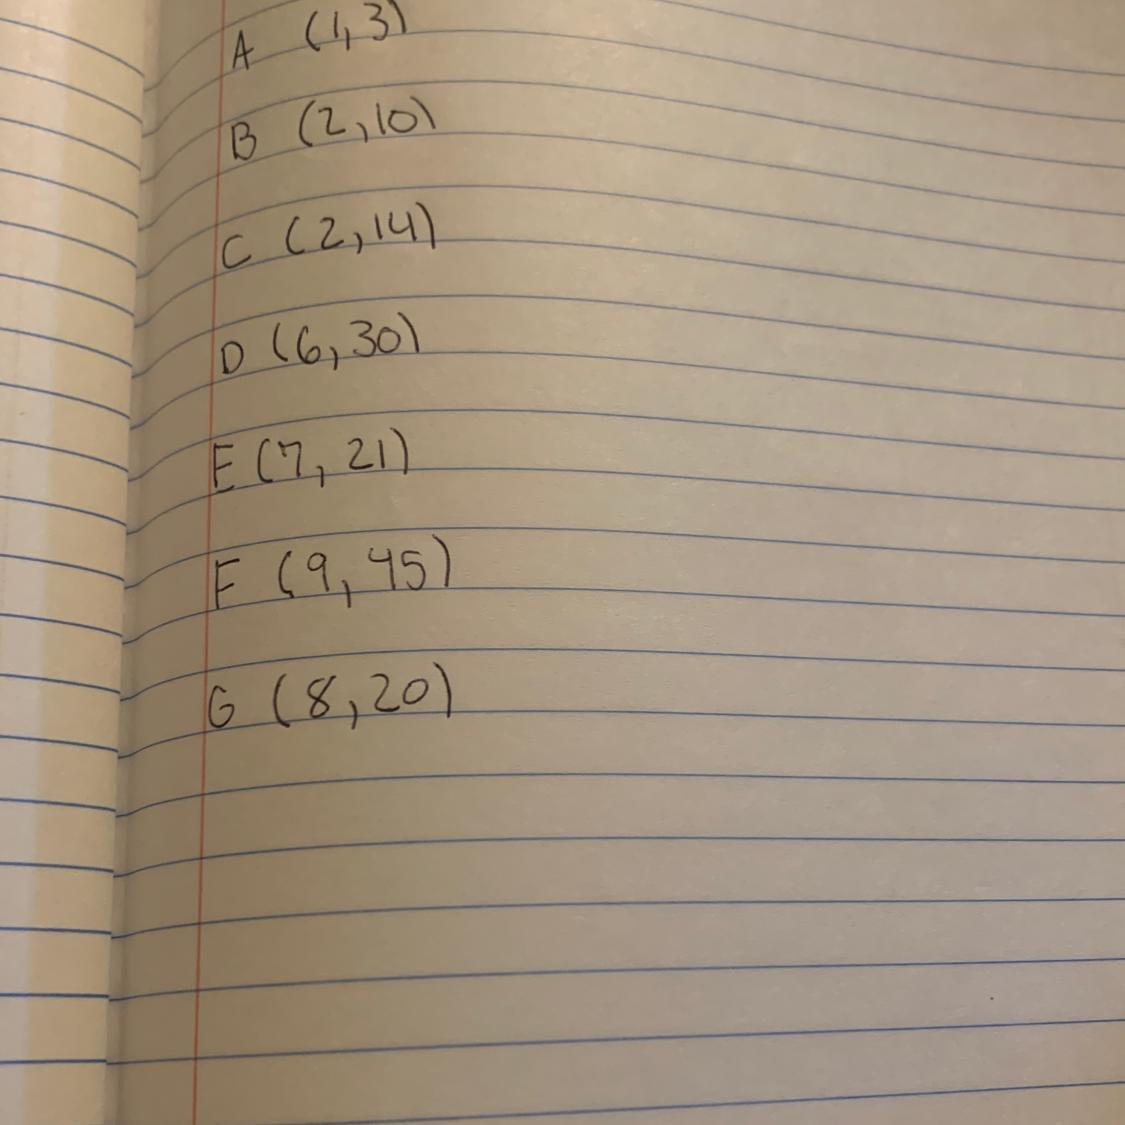 A (1,3)
B (2,10)
C (2,14)
D (6,30)
E (7, 21)
F (9, 45)
G (8,20)